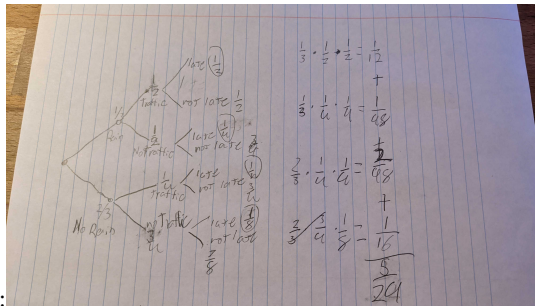 late 1/2
1/2
Traffic
not late 1/2
1/3
Rain
1/2
No Traffic
late 1/4
not late 3/4
2/3
No Rain
1/4
Traffic
late 1/4
not late 3/4
3/4
no Traffic
late 1/8
not late
7/8
1/3 · 1/2 · 1/2 = 1/12
+
1/3 · 1/4 · 1/4 = 1/48
+
2/3 · 1/4 · 1/4 = 2/48
+
2/3 · 3/4 · 1/8 = 1/16
5
24